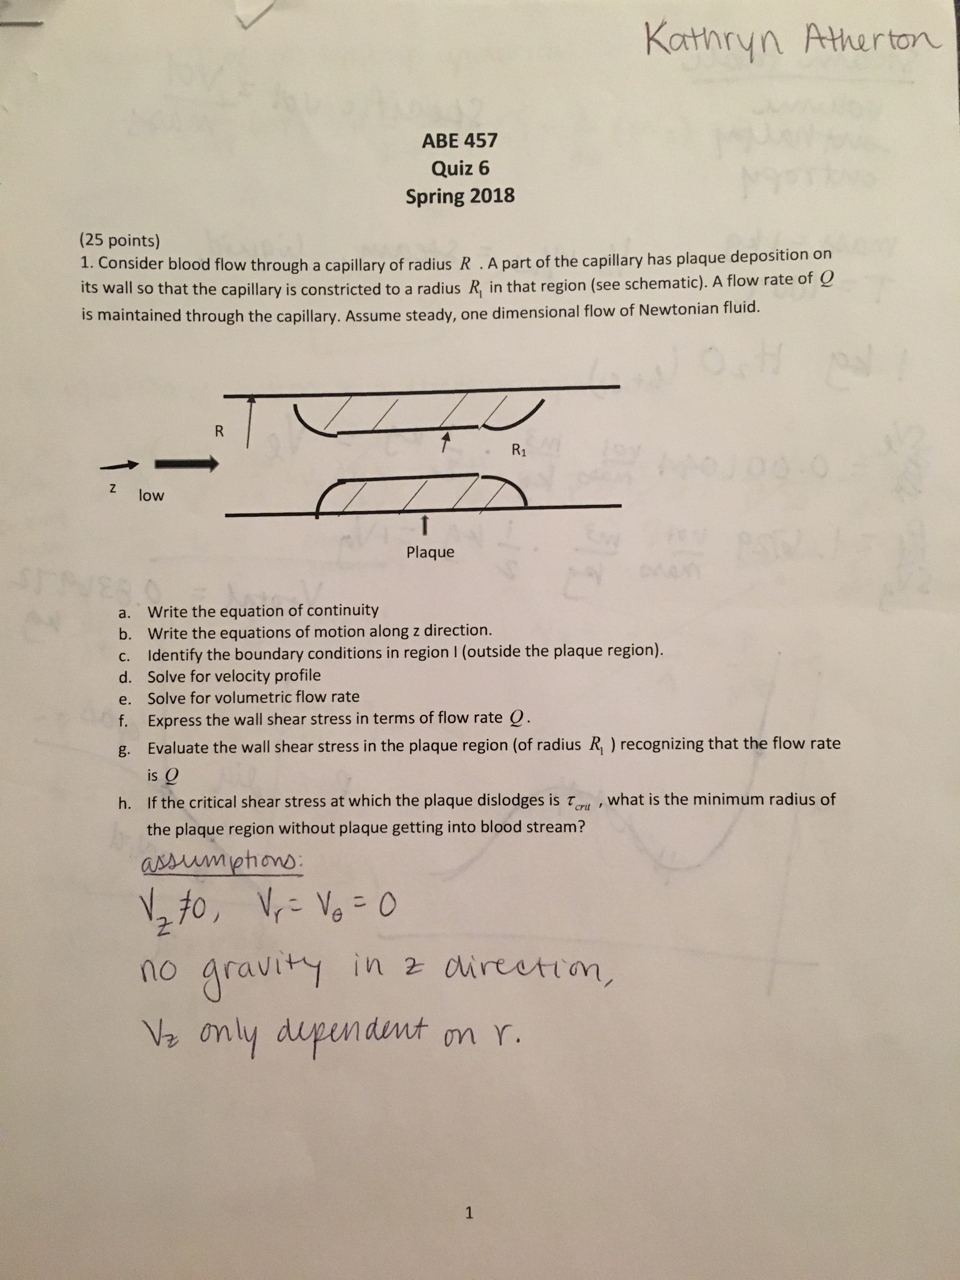 Kathryn Atherton
ABE 457
Quiz 6
Spring 2018
(25 points)
1. Consider blood flow through a capillary of radius R . A part of the capillary has plaque deposition on
its wall so that the capillary is constricted to a radius R₁ in that region (see schematic). A flow rate of Q
is maintained through the capillary. Assume steady, one dimensional flow of Newtonian fluid.
R
R₁
z
low
Plaque
a. Write the equation of continuity
b. Write the equations of motion along z direction.
c. Identify the boundary conditions in region I (outside the plaque region).
d. Solve for velocity profile
e. Solve for volumetric flow rate
f. Express the wall shear stress in terms of flow rate Q.
g. Evaluate the wall shear stress in the plaque region (of radius R₁ ) recognizing that the flow rate
is Q
h. If the critical shear stress at which the plaque dislodges is τcrit , what is the minimum radius of
the plaque region without plaque getting into blood stream?
assumptions:
Vz ≠0, Vr = Vθ = 0
no gravity in z direction,
Vz only dependent on r.
1